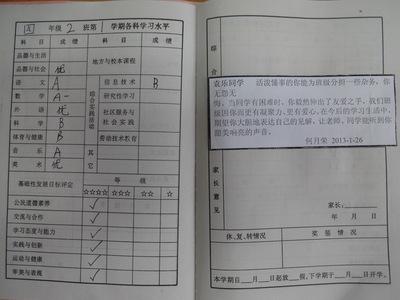 四 年级 2 班第 学期各科学习水平
科 目 成 绩 科 目 成 绩
品德与生活 地方与校本课程
品德与社会 优
语 文 A 综合实践活动 信息技术 B
数 学 A- 研究性学习
外 语 优 社区服务与社会实践
科 学 B
体育与健康 B 劳动技术教育
音 乐 A 其它
美 术 优
基础性发展目标评定 等 级
☆☆☆☆ ☆☆☆ ☆☆ ☆
公民道德素养 ✓
交流与合作 ✓
学习态度与能力 ✓
实践与创新 ✓
运动与健康 ✓
审美与表现 ✓
综
合
袁乐同学 活泼懂事的你能为班级分担一些杂务,你
无怨无
悔。当同学有困难时,你毅然伸出了友爱之手,我们班
级因你而更有凝聚力,更有爱心。在今后的学习生活中,
期望你大胆地表达自己的见解,让老师、同学能听到你
甜美响亮的声音。
何月荣 2013-1-26
家长意见
家长:
年 月 日
休、复、转情况 奖 惩 情 况
本学期自 月 日起放 假,下学期于 月 日开学。